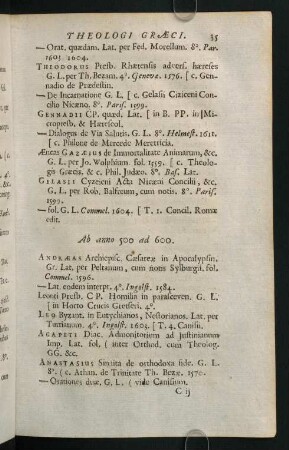 THEOLOGI GRÆCI. 35
— Orat. quædam. Lat. per Fed. Morellum. 8°. Par.
1603. 1604.
THEODORUS Presb. Rhætensis advers. hæreses
G. L. per Th. Bezam. 4°. Genevæ. 1576. [ c. Gen-
nadio de Prædestin.
— De Incarnatione G. L. [ c. Gelasii Ciziceni Con-
cilio Nicæno. 8°. Paris. 1599.
GENNADII CP. quæd. Lat. [ in B. PP. in
Micropresb. & Hæresiol.
— Dialogus de Via Salutis. G. L. 8°. Helmest. 1611.
[ c. Philone de Mercede Meretricia.
Æneas GAZÆUS de Immortalitate Animarum, &c.
G. L. per Jo. Wolphium fol. 1559. [ c. Theolo-
gis Græcis, & c. Phil. Judæo. 8°. Bas. Lat.
GELASII Cyzeceni Acta Nicæni Concilii, &c.
G. L. per Rob. Balforeum, cum notis. 8°. Paris.
1599.
— fol. G. L. Commel. 1604. [ T. 1. Concil. Romæ
edit.
Ab anno 500 ad 600.
ANDREAS Archiepisc. Cæsareæ in Apocalypsin.
Gr. Lat. per Peltanum, cum notis Sylburgii. fol.
Commel. 1596.
— Lat. eodem interpr. 4°. Ingolst. 1584.
Leontii Presb. CP. Homilia in parasceven. G. L.
[ in Horto Crucis Gretseri. 4°.
LEO Byzant. in Eutychianos, Nestorianos. Lat. per
Turrianum. 4°. Ingolst. 1603. [ T. 4. Canisii.
AGAPETI Diac. Admonitorium ad Justinianum
Imp. Lat. fol. ( inter Orthod. cum Theolog.
GG. &c.
ANASTASIUS Sinaita de orthodoxa fide. G. L.
8°. ( c. Athan. de Trinitate Th. Bezæ. 1570.
— Orationes duæ, G. L. ( vide Canisium.
C ij